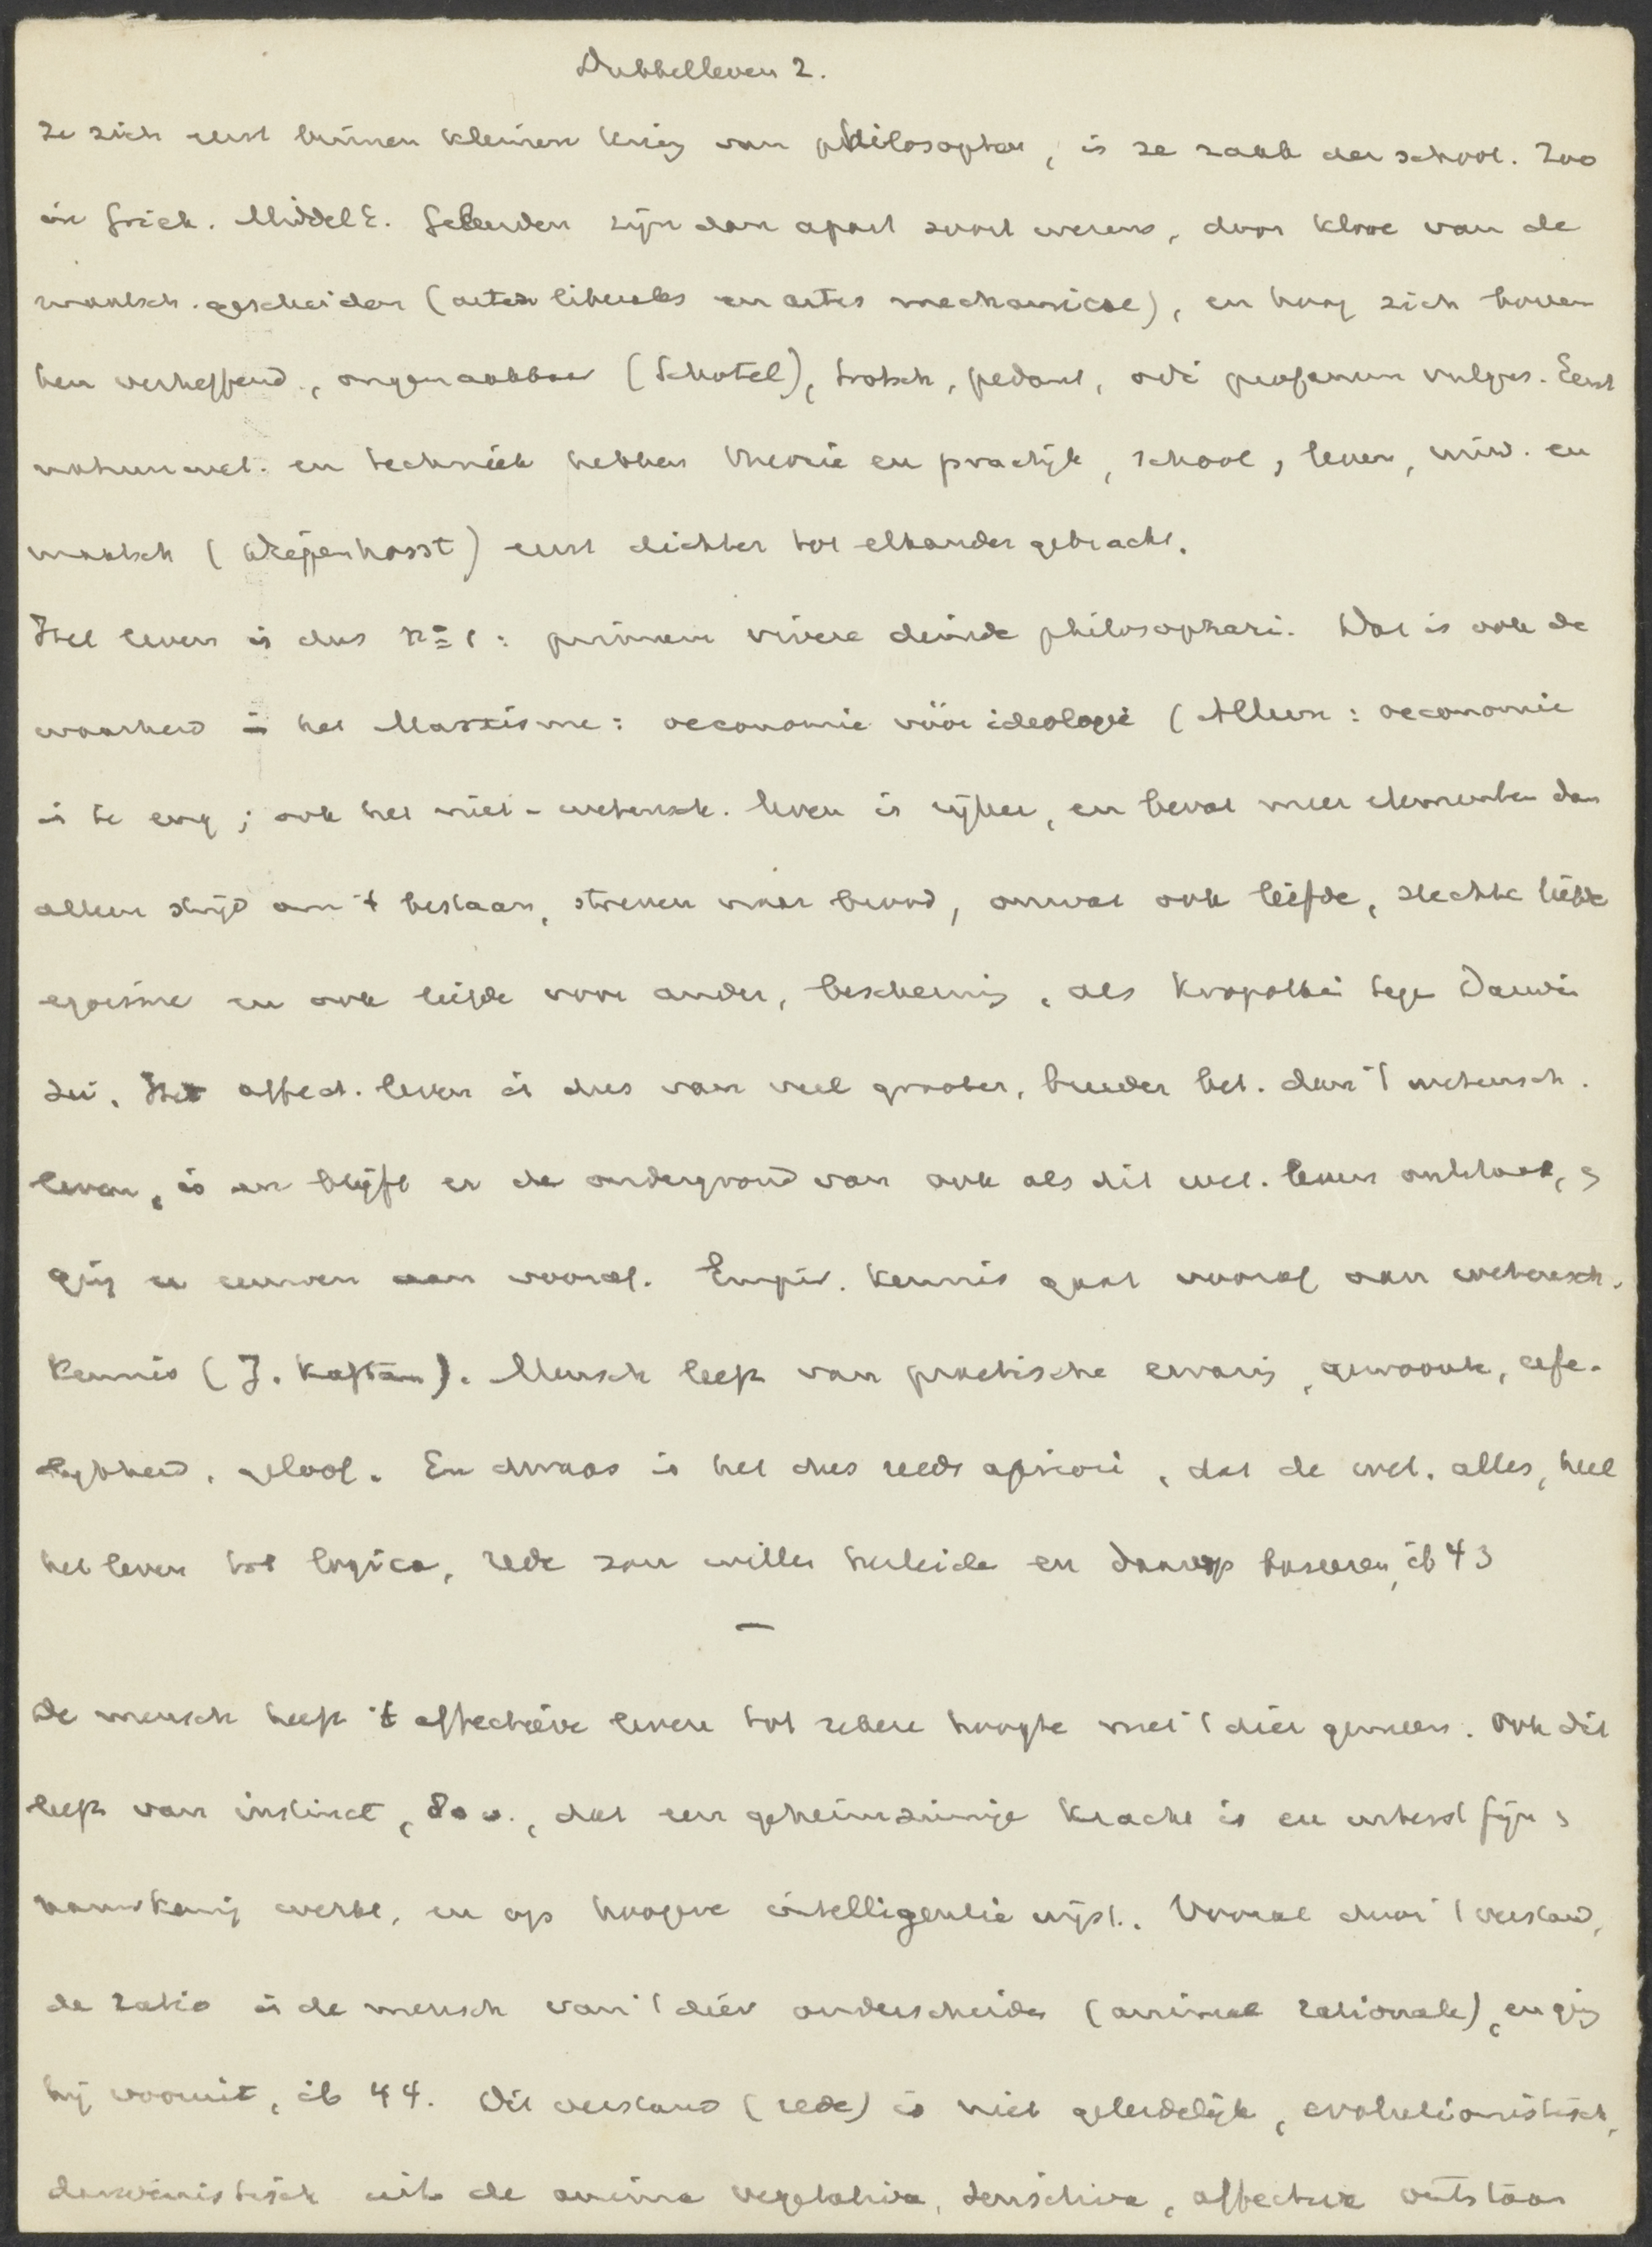 Dubbelleven 2.
ze zich eerst binnen kleinen kring van philosophen, is ze zaak der school. Zoo
in Griek. Middel E. Geleerden zijn dan apart soort wezens, door kloof van de
maatsch. gescheiden (artes liberales en artes mechanicae), en hoog zich boven
hen verheffend, ongenaakbaar (Schotel), trotsch, pedant, odi profanum vulgus. Eerst
natuurwet. en techniek hebben theorie en practijk, school, leven, univ. en
maatsch ( ) eerst dichter tot elkander gebracht.
Het leven is dus nº 1: primum vivere deinde philosophari. Dat is ook de
waarheid in het Marxisme: oeconomie vóór ideologie (Alleen: oeconomie
is te eng; ook het niet-wetensch. leven is rijker, en bevat meer elementen dan
alleen strijd om 't bestaan, streven naar brood, omvat ook liefde, slechte liefde
egoisme en ook liefde voor ander, bescherming, als Kropotkin tegen Darwin
zei. Het affect. leven is dus van veel grooter, breeder bet. dan 't wetensch.
leven, is en blijft er de ondergrond van ook als dit wet. leven ontstaat, en
ging er eeuwen aan vooraf. Empir. kennis gaat vooraf aan wetensch.
kennis (J. Kaftan). Mensch leeft van practische ervaring, gewoonte, erfe-
lijkheid, geloof. En dwaas is het dus reeds apriori, dat de wet. alles, heel
het leven tot logica, rede zou willen herleide en daarop baseeren, ib 43
—
De mensch heeft 't affectieve leven tot zekere hoogte met 't dier gemeen. Ook dit
leeft van instinct, dat een geheimzinnige kracht is en uiterst fijn en
nauwkeurig werkt, en op hoogere intelligentie wijst. Vooral door 't verstand,
de ratio is de mensch van 't dier onderscheiden (animal rationale), en ging
hij vooruit, ib 44. Dit verstand (rede) is niet geleidelijk, evolutionistisch,
darwinistisch uit de anima vegetativa, sensitiva, affectiva ontstaan